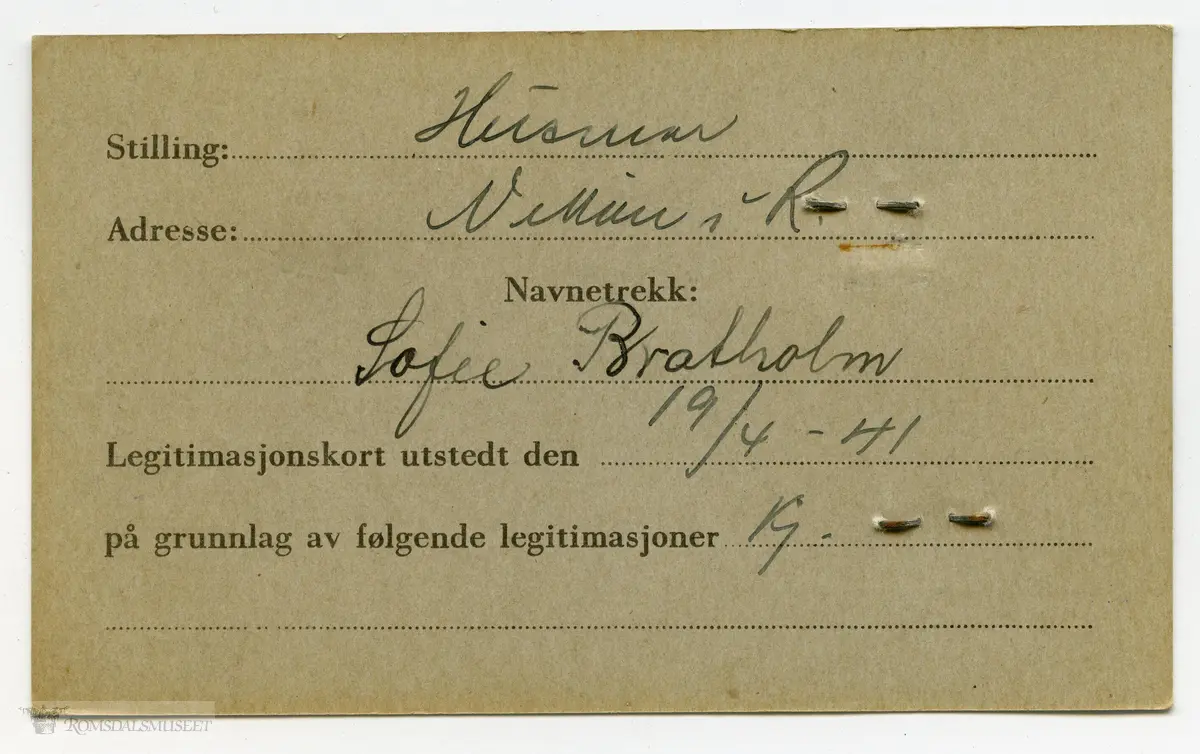 Stilling: Husmor
Adresse: i R.
Navnetrekk:
Sofie Bratholm
Legitimasjonskort utstedt den 19/4 - 41
på grunnlag av følgende legitimasjoner Kj.
ROMSDALSMUSEET